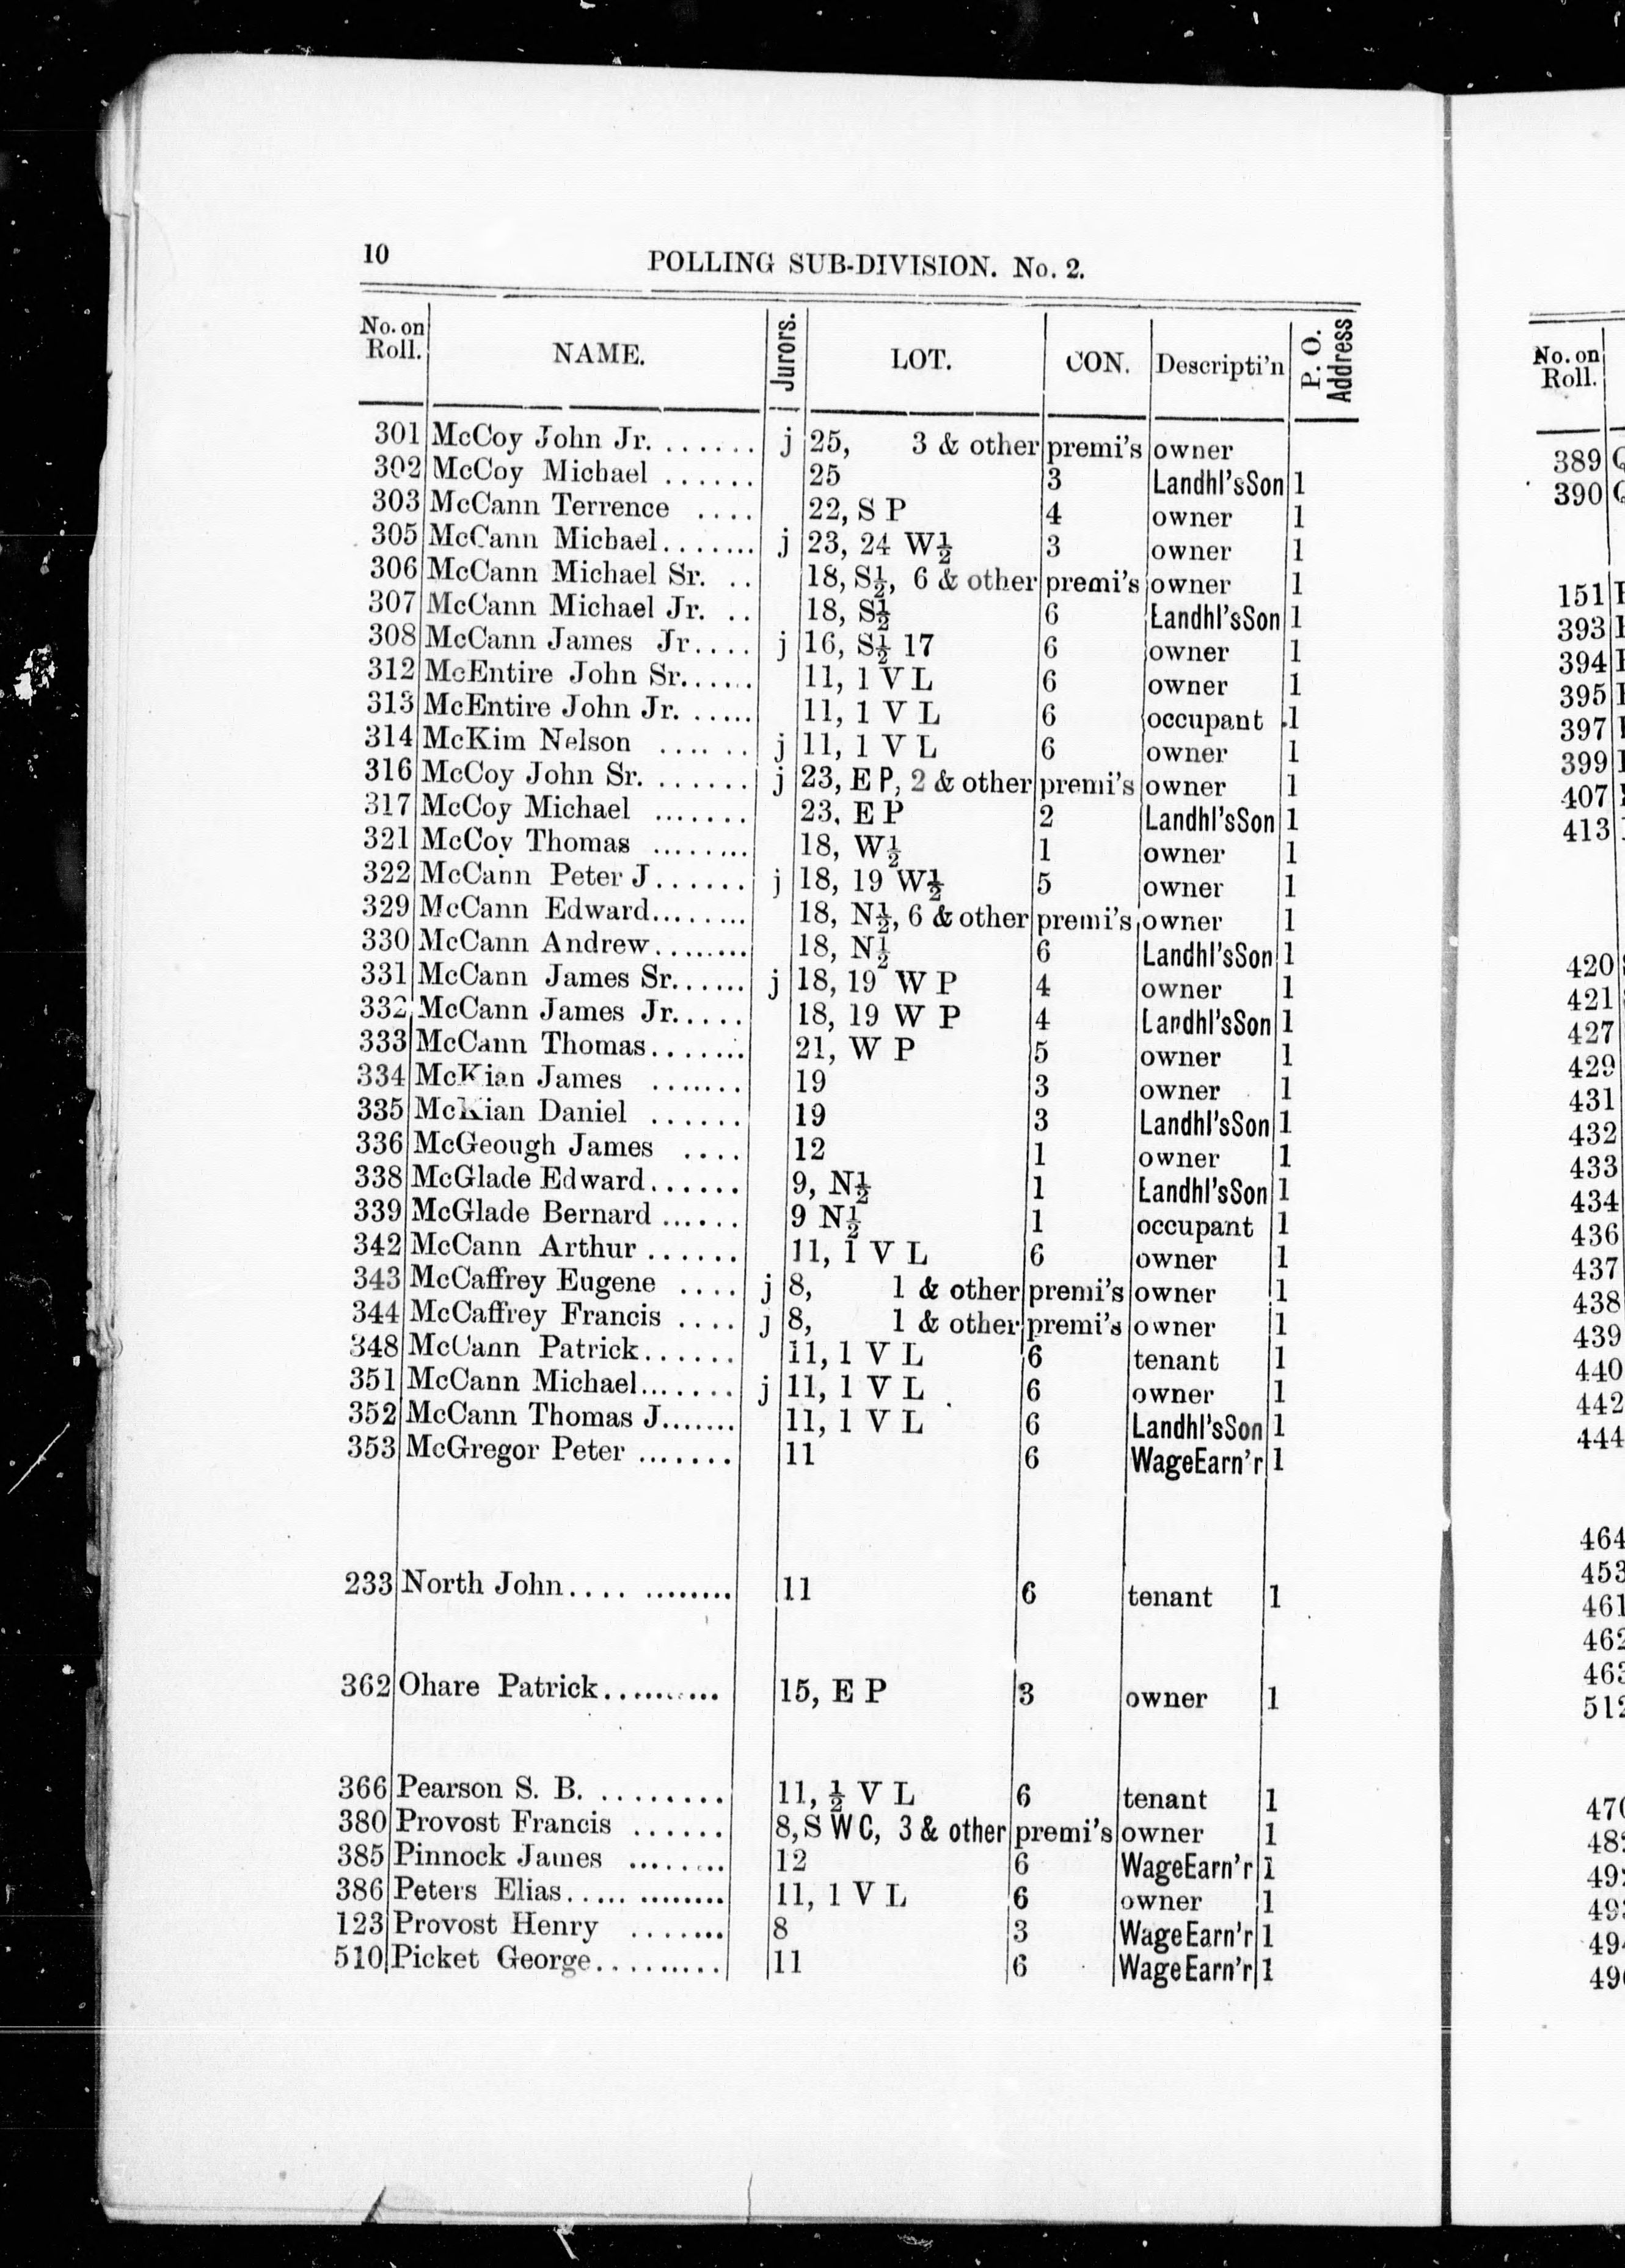 10 POLLING SUB-DIVISION. No. 2.
No. on Roll. NAME. Jurors. LOT. CON. Descripti'n P. O. Address
301 McCoy John Jr. ....... j 25, 3 & other premi's owner
302 McCoy Michael ...... 25 3 Landhl'sSon 1
303 McCann Terrence .... 22, S P 4 owner 1
305 McCann Michael........ j 23, 24 W½ 3 owner 1
306 McCann Michael Sr. .. 18, S½, 6 & other premi's owner 1
307 McCann Michael Jr. .. 18, S½ 6 Landhl'sSon 1
308 McCann James Jr.... j 16, S½ 17 6 owner 1
312 McEntire John Sr...... 11, 1 V L 6 owner 1
313 McEntire John Jr. ...... 11, 1 V L 6 occupant 1
314 McKim Nelson ...... j 11, 1 V L 6 owner 1
316 McCoy John Sr. ....... j 23, E P, 2 & other premi's owner 1
317 McCoy Michael ....... 23, E P 2 Landhl'sSon 1
321 McCoy Thomas ........ 18, W½ 1 owner 1
322 McCann Peter J...... j 18, 19 W½ 5 owner 1
329 McCann Edward........ 18, N½, 6 & other premi's owner 1
330 McCann Andrew......... 18, N½ 6 Landhl'sSon 1
331 McCann James Sr...... j 18, 19 W P 4 owner 1
332 McCann James Jr..... 18, 19 W P 4 Landhl'sSon 1
333 McCann Thomas........ 21, W P 5 owner 1
334 McKian James ....... 19 3 owner 1
335 McKian Daniel ...... 19 3 Landhl'sSon 1
336 McGeough James .... 12 1 owner 1
338 McGlade Edward...... 9, N½ 1 Landhl'sSon 1
339 McGlade Bernard ...... 9 N½ 1 occupant 1
342 McCann Arthur ...... 11, 1 V L 6 owner 1
343 McCaffrey Eugene .... j 8, 1 & other premi's owner 1
344 McCaffrey Francis .... j 8, 1 & other premi's owner 1
348 McCann Patrick...... 11, 1 V L 6 tenant 1
351 McCann Michael....... j 11, 1 V L 6 owner 1
352 McCann Thomas J....... 11, 1 V L 6 Landhl'sSon 1
353 McGregor Peter ....... 11 6 WageEarn'r 1
233 North John.... ......... 11 6 tenant 1
362 Ohare Patrick.......... 15, E P 3 owner 1
366 Pearson S. B. ......... 11, ½ V L 6 tenant 1
380 Provost Francis ...... 8, S W C, 3 & other premi's owner 1
385 Pinnock James ........ 12 6 WageEarn'r 1
386 Peters Elias...... ........ 11, 1 V L 6 owner 1
123 Provost Henry ....... 8 3 WageEarn'r 1
510 Picket George.......... 11 6 WageEarn'r 1
No. on Roll.
389
390
151
393
394
395
397
399
407
413
420
421
427
429
431
432
433
434
436
437
438
439
440
442
444
464
453
461